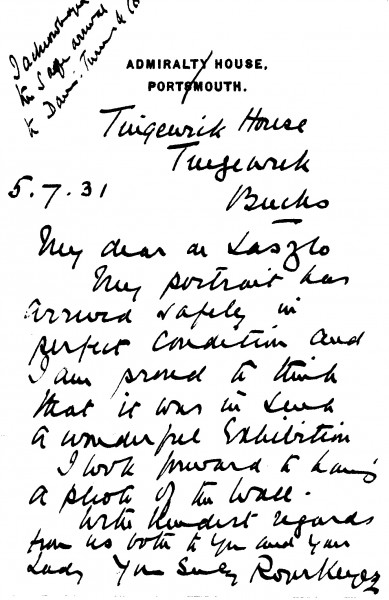 I acknowledged
the safe arrival
to Davis. Turner & Co
ADMIRALTY HOUSE,
PORTSMOUTH.
Tingewick House
Tingewick
Bucks
5.7.31
My dear de Laszlo
My portrait has
arrived safely in
perfect condition and
I am proud to think
that it was in such
a wonderful Exhibition
I look forward to having
a photo of the Wall.
With kindest regards
from us both to you and your
Lady Yrs Sincly Roger Keyes